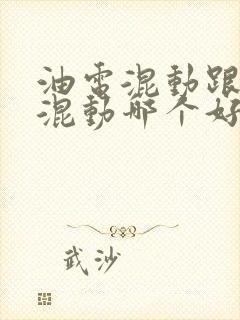 油電混動跟
混動哪个好
武沙